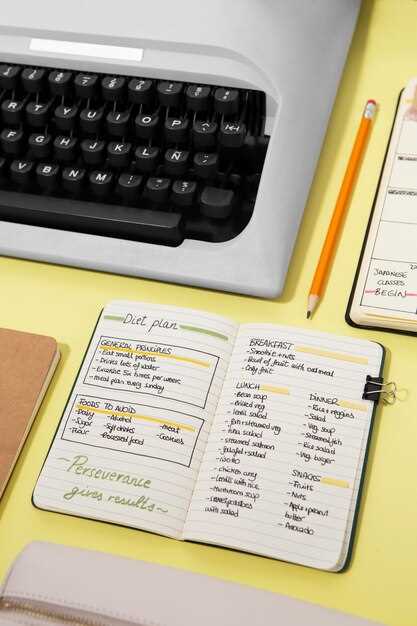 R T Y U I O P
F G H J K L Ñ
V B N M
Diet plan
GENERAL PRINCIPLES
- Eat small portions
- Drink lots of water
- Exercise six times per week
- Meal plan every sunday
FOODS TO AVOID
- Dairy
- Sugar
- Flour
- Alcohol
- Soft drinks
- Processed food
- Meat
- Sweets
~ Perseverance
gives results ~
BREAKFAST
- Smoothie + nuts
- Bowl of fruit with oat meal
- Only fruit
LUNCH
- Bean soup
- Grilled veg
- Lentil salad
- Fish + steamed veg
- Tuna salad
- Steamed salmon
- Falafel + salad
- Risotto
- Chicken curry
- Lentils with rice
- Mushroom soup
with salad
DINNER
- Rice + veggies
- Salad
- Veg. soup
- Steamed fish
- Veg burger
SNACKS
- Fruits
- Nuts
- Apple + peanut
butter
- Avocado
JAPANESE
CLASSES
BEGIN